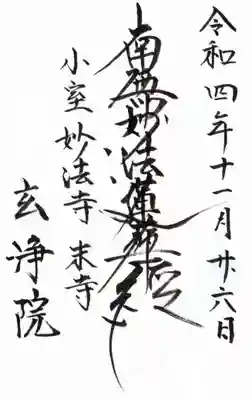 令和四年十一月廿六日
南無妙法蓮華経
小室 妙法寺 末寺
玄浄院